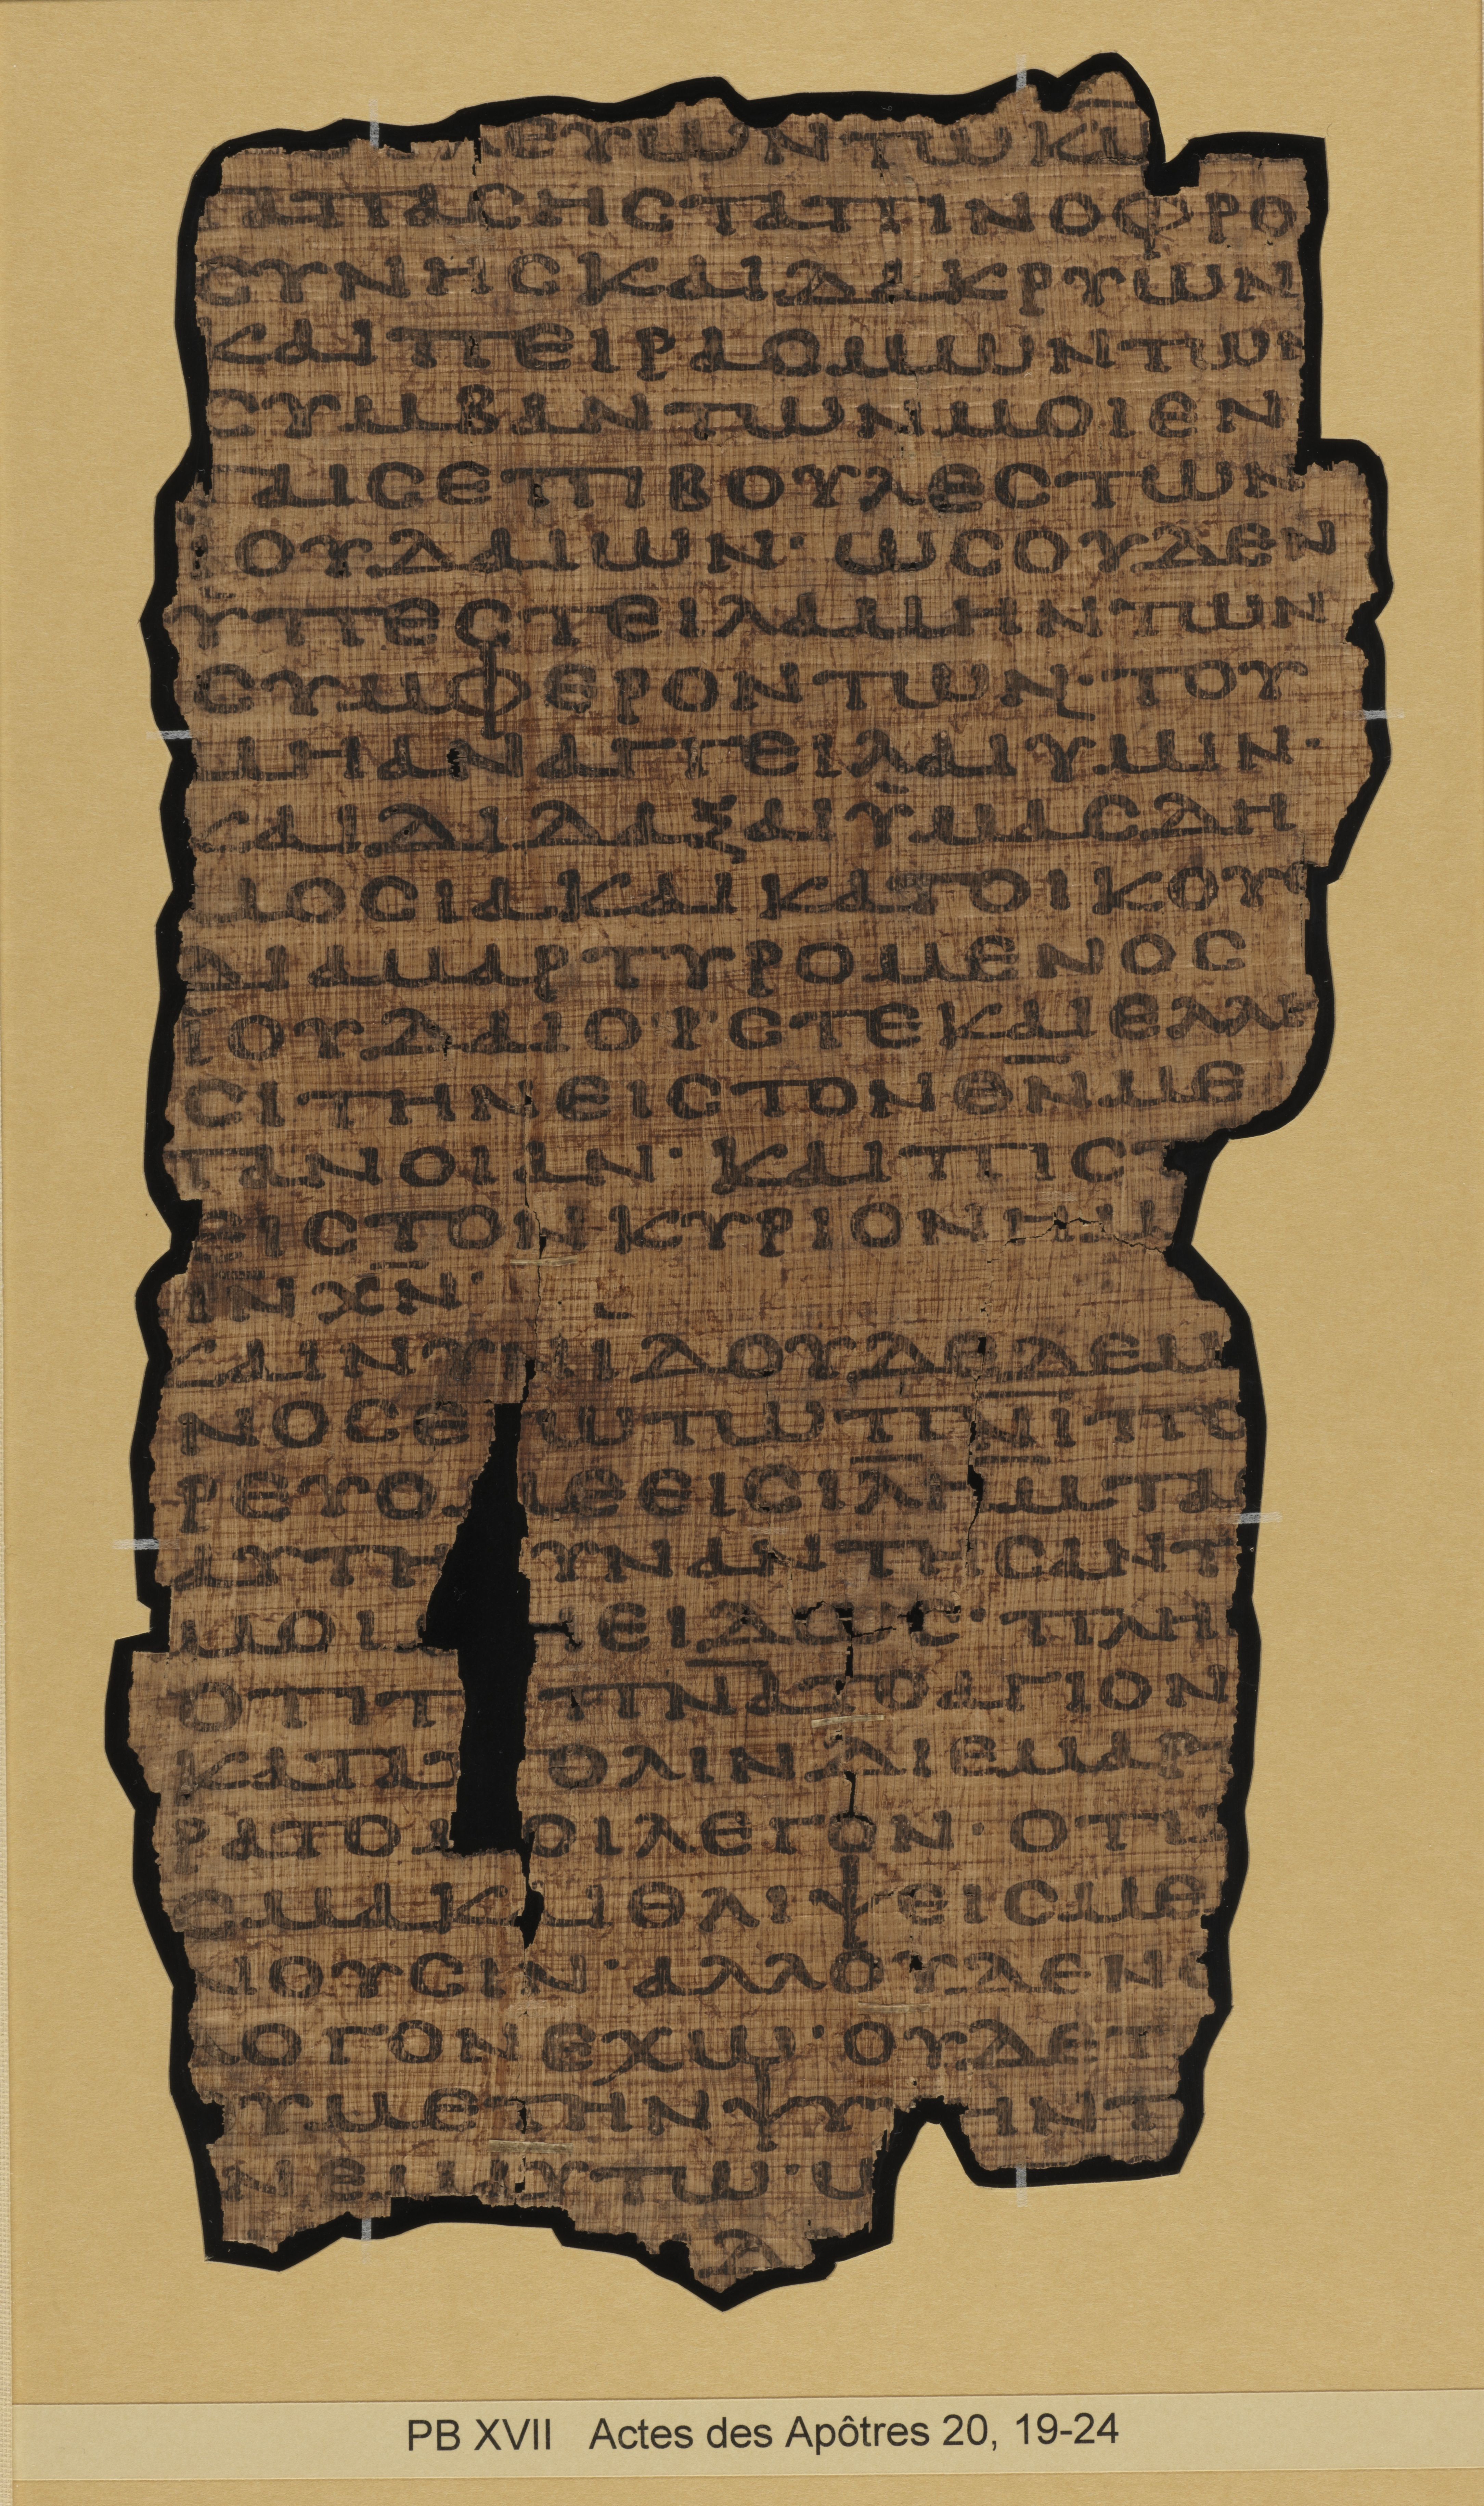 ΛΕΥΩΝΤΩΚΩ
ΤΑΠΑCΗCΤΑΠΙΝΟΦΡΟ
CΥΝΗCΚΑΙΔΑΚΡΥΩΝ
ΚΑΙΠΕΙΡΑΟΜΩΝΤΩΝ
CΥΜΒΑΝΤΩΝΜΟΙΕΝ
ΤΑΙCΕΠΙΒΟΥΛΕCΤΩΝ
ΙΟΥΔΑΙΩΝ·ΩCΟΥΔΕΝ
ΥΠΕCΤΕΙΛΑΜΗΝΤΩΝ
CΥΜΦΕΡΟΝΤΩΝ·ΤΟΥ
ΜΗΑΝΑΓΓΕΙΛΑΙΥΜΙΝ·
ΚΑΙΔΙΔΑΞΑΙΫΜΑCΔΗ
ΜΟCΙΑΚΑΙΚΑΤΟΙΚΟΥC
ΔΙΑΜΑΡΤΥΡΟΜΕΝΟC
ΪΟΥΔΑΙΟΙCΤΕΚΑΙΕΛΛΗ
CΙΤΗΝΕΙCΤΟΝΘ̅Ν̅ΜΕ
ΤΑΝΟΙΑΝ·ΚΑΙΠΙCΤ
ΕΙCΤΟΝΚΥΡΙΟΝΗΜ
ΙΝΧ̅Ν̅·
ΚΑΙΝΥΝΙΔΟΥΔΕΔΕΜ
ΝΟCΕΓΩΤΩΠ̅Ν̅Ι̅ΠΟ
ΡΕΥΟΜΕΘΕΙCΙ̅Λ̅Η̅Μ̅ΤΑ
ΑΥΤΗ ΥΝΑΝΤΗCΑΝΤ
ΜΟΙΜΗΕΙΔΩC·ΠΛΗ
ΟΤΙΤ Π̅Ν̅Α̅ΤΟΑΓΙΟΝ
ΚΑΤΑΠΟΛΙΝΔΙΕΜΑΡ
ΡΑΤΟΜΟΙΛΕΓΟΝ·ΟΤΙ
CΜΑΚΑΙΘΛΙΨΕΙCΜΕ
ΝΟΥCΙΝ·ΑΛΛΟΥΔΕΝΟ
ΛΟΓΟΝΕΧΩ·ΟΥΔΕΤ
ΟΥΜΕΤΗΝΨΥΧΗΝΤ
ΝΕΜΑΥΤΩ·Ω
Λ
PB XVII Actes des Apôtres 20, 19-24